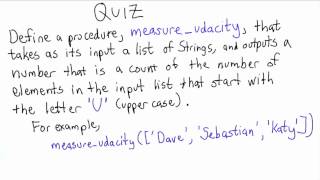 QUIZ
Define a procedure, measure_udacity, that
takes as its input a list of Strings, and outputs a
number that is a count of the number of
elements in the input list that start with
the letter 'U' (uppercase).
For example,
measure_udacity(['Dave', 'Sebastian', 'Katy'])